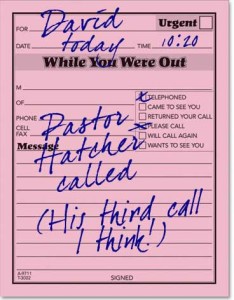 FOR David Urgent
DATE today TIME 10:20
While You Were Out
M
OF
TELEPHONED
CAME TO SEE YOU
RETURNED YOUR CALL
PHONE Pastor PLEASE CALL
CELL
FAX
WILL CALL AGAIN
Message Hatcher WANTS TO SEE YOU
called
(His third call
I think!)
A-9711
T-3002
SIGNED